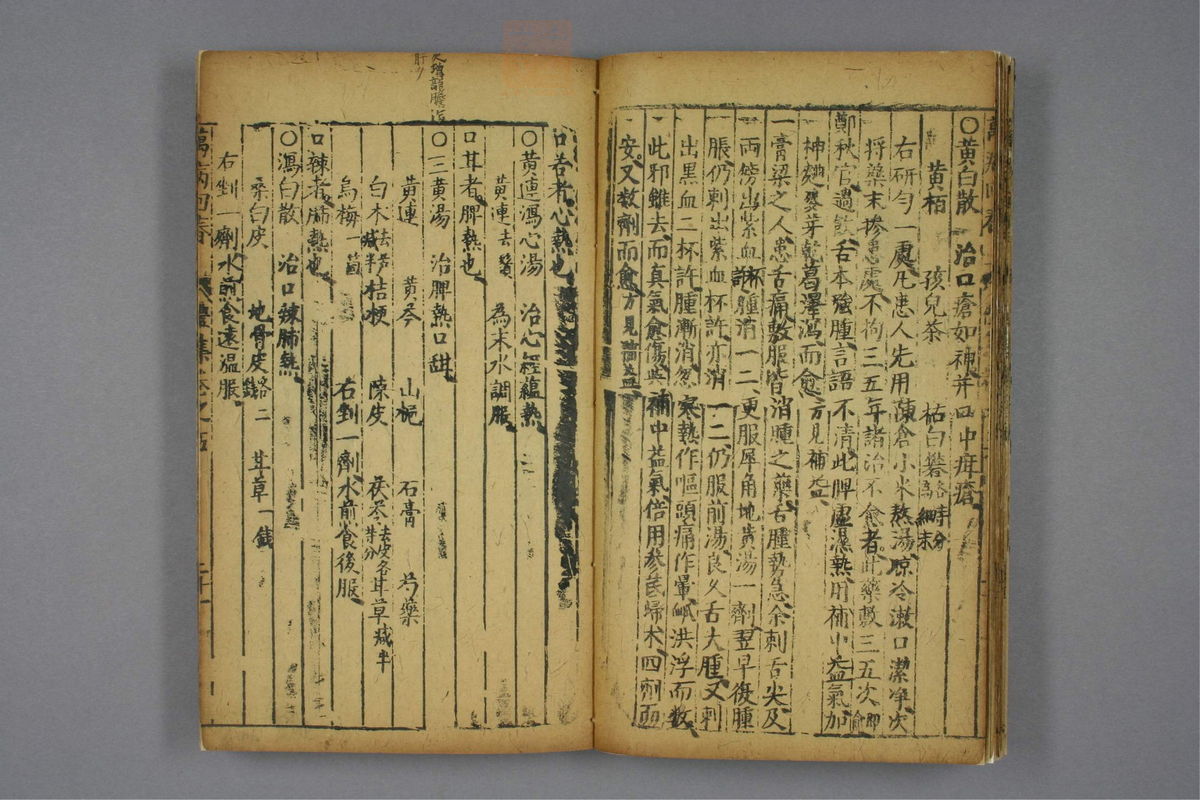 〇黄白散　治口瘡如神并口中疳瘡
黄栢　孩兒茶　枯白礬各等分細末
右研勻一處凡患人先用陳倉小米熬湯晾冷漱口潔凈次
將藥末摻患處不拘三五年諸治不愈者此藥敷三五次即愈
鄭秋官過飲舌本強腫言語不清此脾虛濕熱用補中益氣加
神麯麥芽乾葛澤瀉而愈方見補益
一膏粱之人患舌痛敷服皆消腫之藥舌腫勢急余刺舌尖及
兩傍出紫血杯許腫消一二更服犀角地黄湯一劑翌早復腫
脹仍刺出紫血杯許亦消一二仍服前湯良久舌大腫又刺
出黑血二杯許腫漸消忽寒熱作嘔頭痛作暈脉洪浮而数
此邪雖去而真氣愈傷與補中益氣倍用參芪歸术四劑而
安又数劑而愈方見補益
口苦者心熱也
〇黄連瀉心湯　治心經蘊熱
黄連去鬚　為末水調服
口甘者脾熱也
〇三黄湯　治脾熱口甜
黄連　黄芩　山梔　石膏　芍藥
白术去芦減半　桔梗　陳皮　茯苓去皮各等分　甘草減半
烏梅一箇　右剉一劑水煎食後服
口辣者肺熱也
〇瀉白散　治口辣肺熱
桑白皮　地骨皮各二錢　甘草一錢
右剉一劑水煎食遠温服
萬病回春